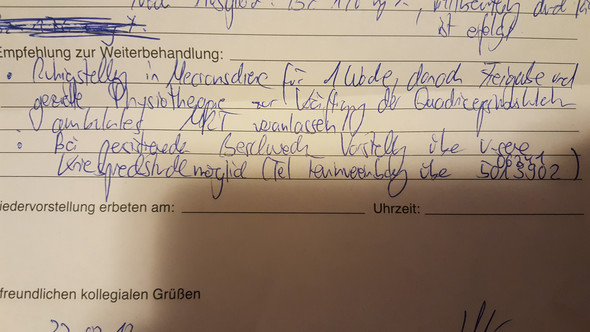 ist erfolgt
Empfehlung zur Weiterbehandlung:
• Ruhigstellung in Mecronschiene für 1 Woche, danach Freigabe und
gezielte Physiotherapie zur Kräftigung der Quadricepsmuskulatur
ambulantes MRT veranlassen
• bei persistierende Beschwerden Vorstellung über unsere
Kniesprechstunde möglich (Tel über 06341
5013902)
iedervorstellung erbeten am: Uhrzeit:
freundlichen kollegialen Grüßen